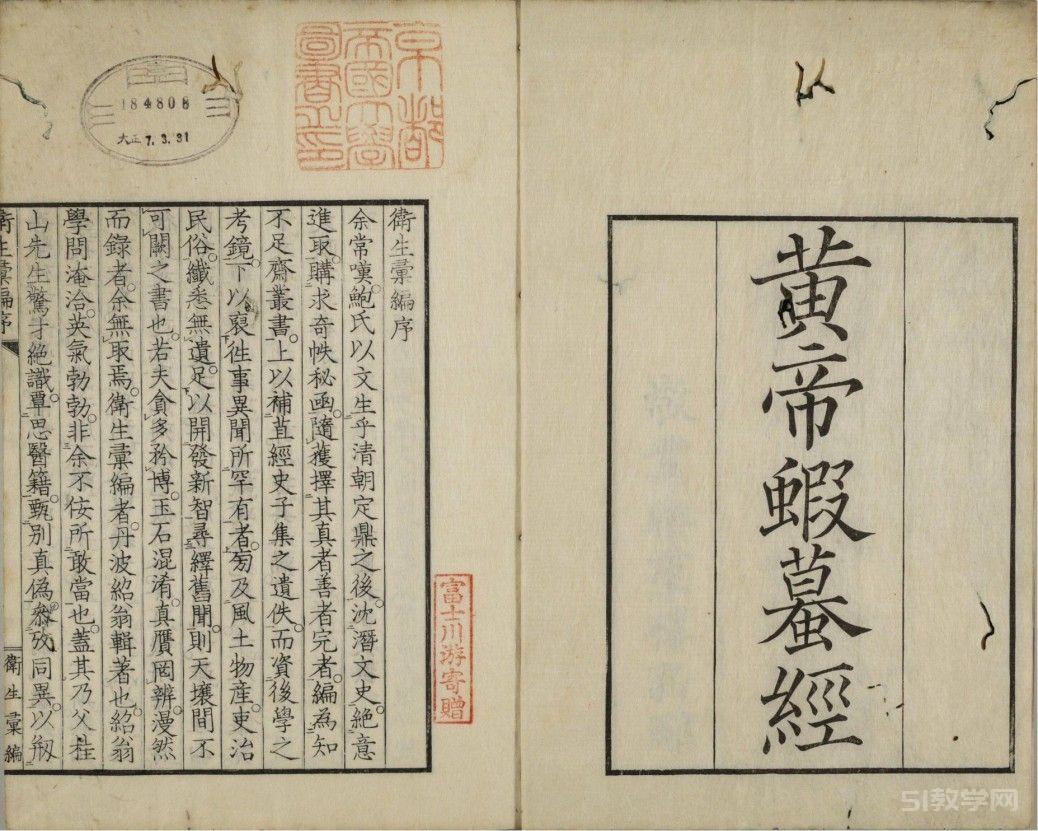 黃帝蝦蟇經
京都
帝國大學
圖書之印
184808
大正7.3.31
富士川游寄贈
衛生彙編序
余常嘆鮑氏以文生乎清朝定鼎之後。沈潛文史。絕意
進取。購求奇帙秘函。隨獲擇其真者善者完者。編為知
不足齋叢書。上以補苴經史子集之遺佚。而資後學之
考鏡。下以裒徃事異聞所罕有者。旁及風土物產。吏治
民俗。纖悉無遺。足以開發新智尋繹舊聞。則天壤間不
可闕之書也。若夫貪多矜博。玉石混淆。真贋罔辨。漫然
而錄者。余無取焉。衛生彙編者。丹波紹翁輯著也。紹翁
學問淹洽。英氣勃勃。非余不佞所敢當也。蓋其乃父桂
山先生驚才絕識。覃思醫籍。甄別真偽。參攷同異。以剏
衛生彙編序
衛生彙編
51教学网